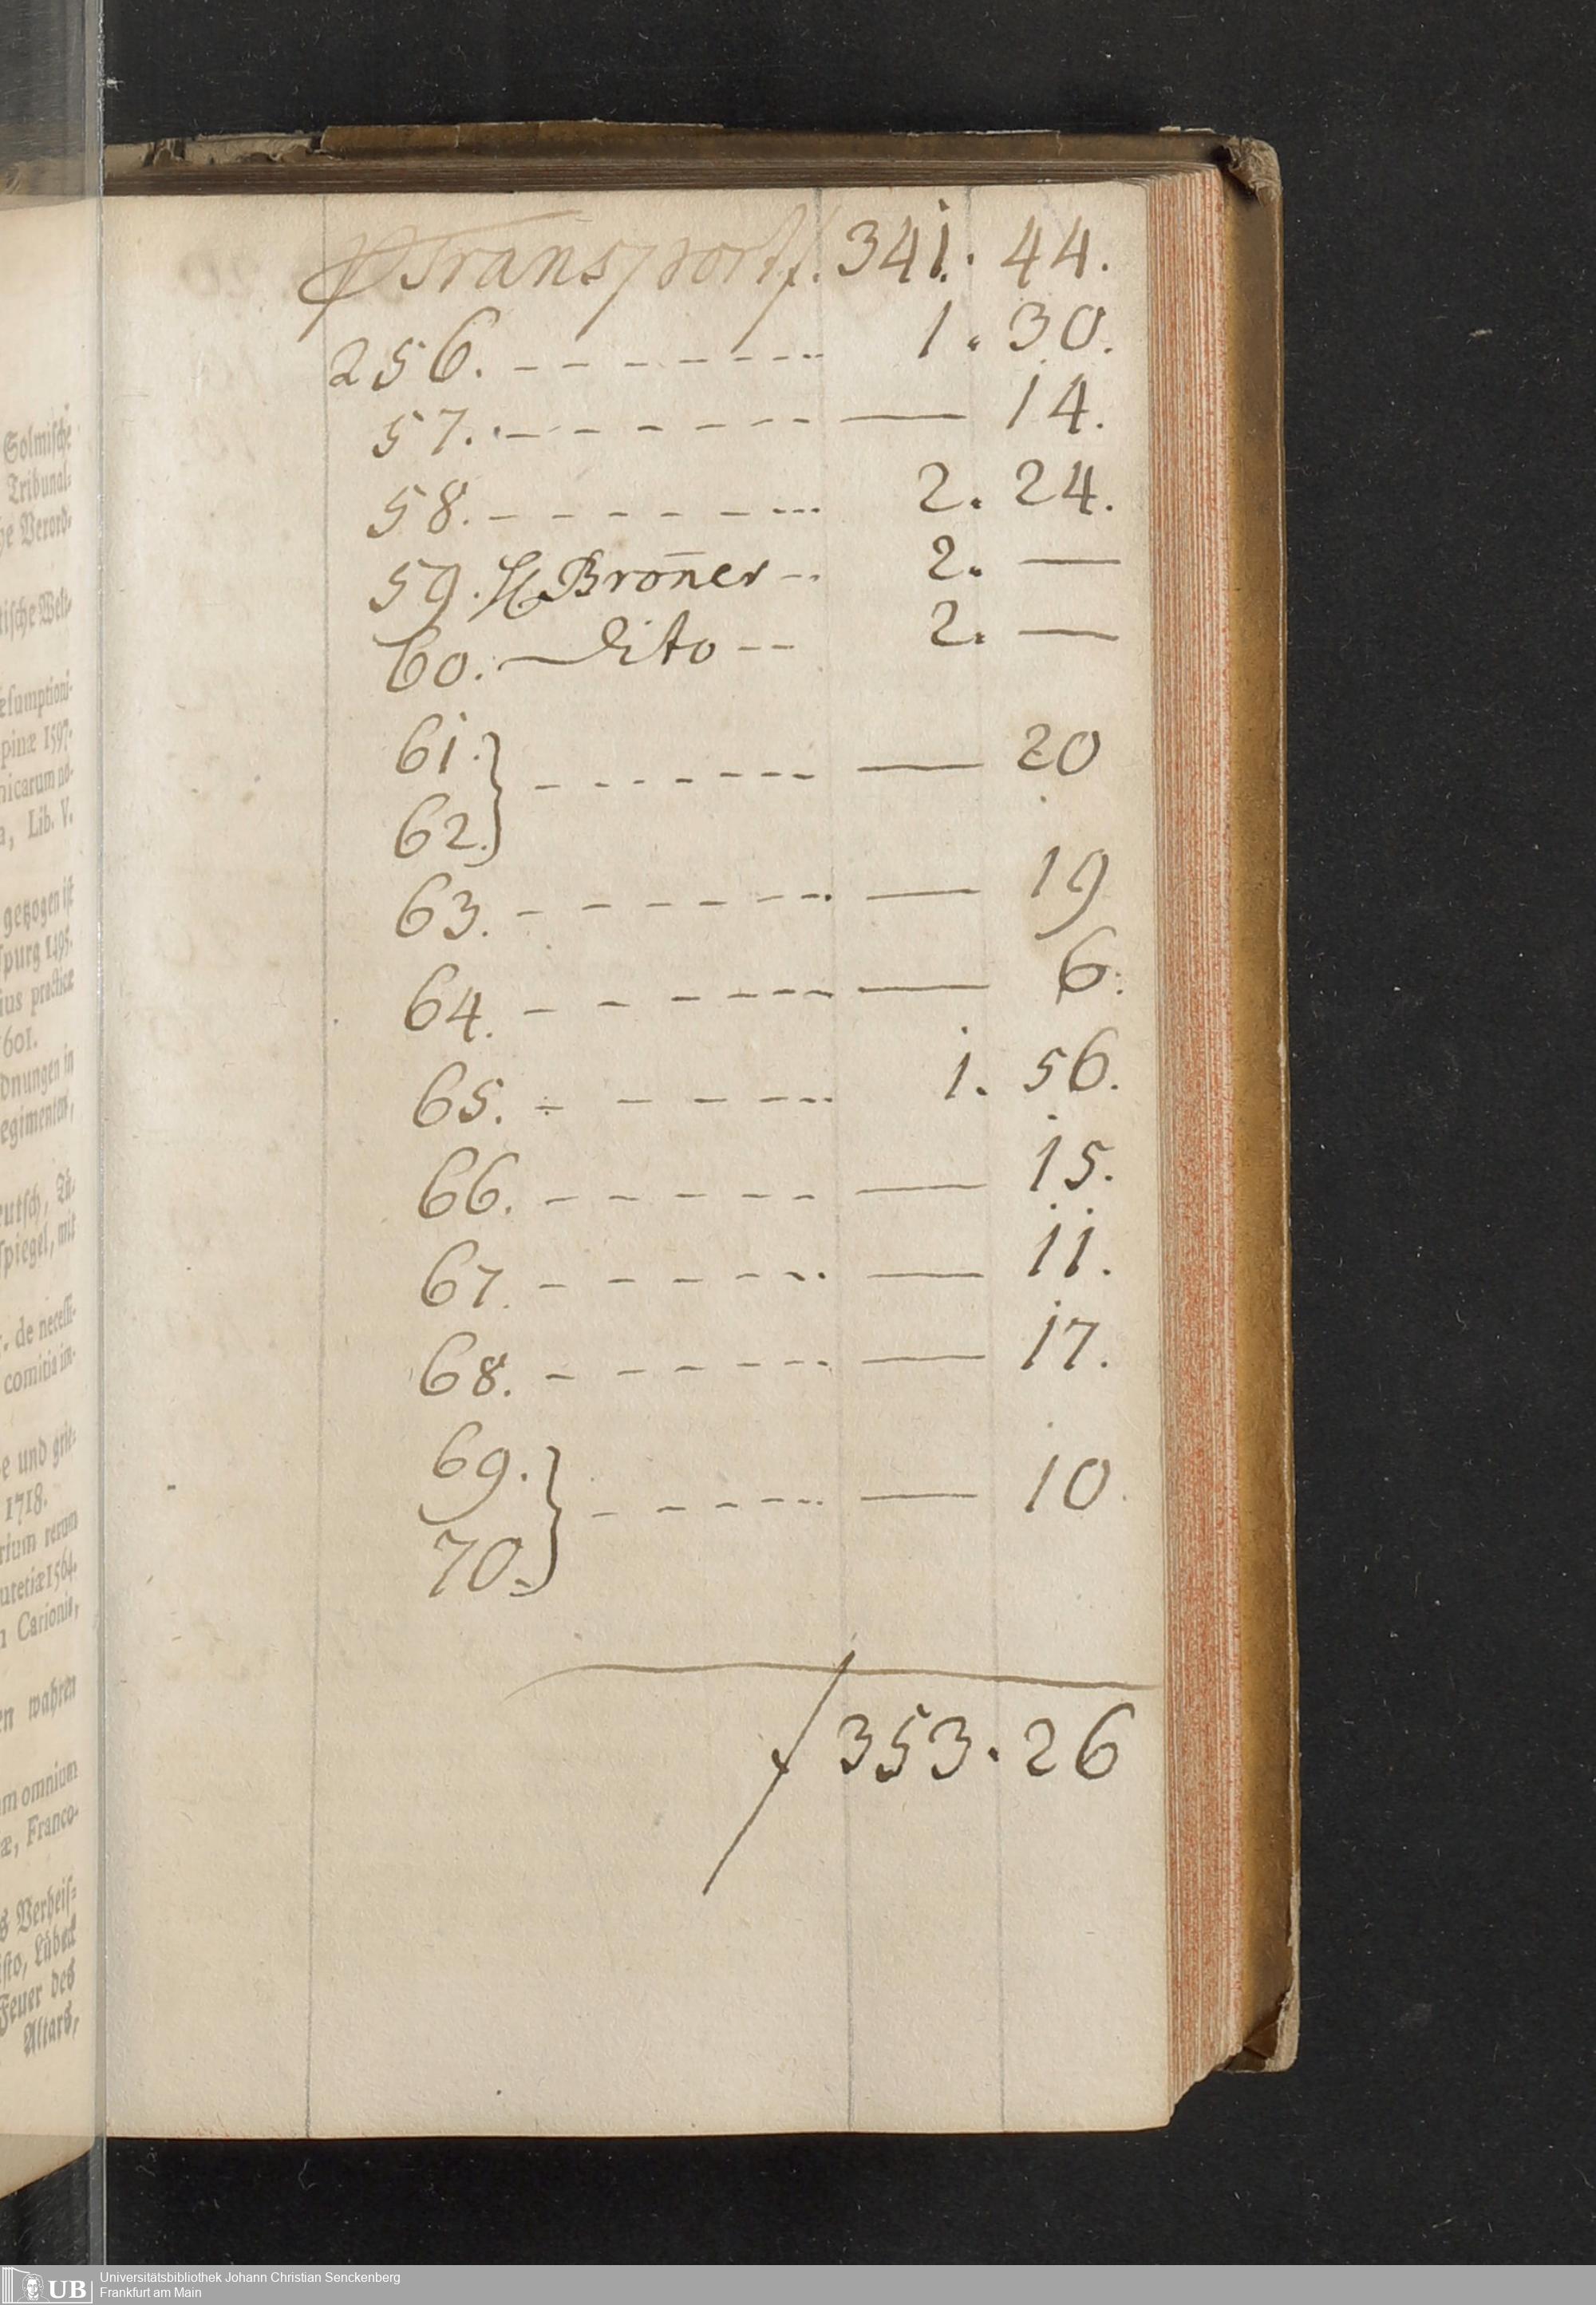 Solmische
Tribunal-
he Verord-
tische Welt-
æsumptioni-
pinæ 1597.
nicarum no-
a, Lib. V.
gezogen ist
spurg 1495.
ius practicæ
1601.
dnungen in
egimenten,
eutsch,
spiegel, mit
. de necessi-
comitia im-
e und grie-
1718.
rium rerum
utetiæ 1564.
n Carionis,
en wahren
m omnium
æ, Franco-
s Verheis-
isto, Lübeck
Feuer des
Altars,
Transport f. 341. 44.
256. - - - - - - - 1. 30.
57. - - - - - - — 14.
58. - - - - - - - 2. 24.
59. H Broñer - - 2. —
60. — dito - - 2. —
61.
62. } - - - - - - - — 20
63. - - - - - - - — 19
64. - - - - - - - — 6.
65. - - - - - - 1. 56.
66. - - - - - - — 15.
67. - - - - - - — 11.
68. - - - - - - — 17.
69.
70. } - - - - - - — 10.
f 353. 26
UB
Universitätsbibliothek Johann Christian Senckenberg
Frankfurt am Main